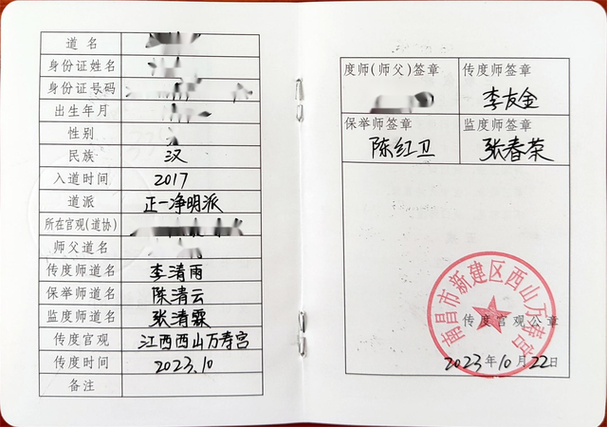 道名
身份证姓名
身份证号码
出生年月
性别
民族 汉
入道时间 2017
道派 正一净明派
所在宫观(道协)
师父道名
传度师道名 李清雨
保举师道名 陈清云
监度师道名 张清霖
传度宫观 江西西山万寿宫
传度时间 2023.10
备注
度师(师父)签章 传度师签章
李友金
保举师签章 监度师签章
陈红卫 张春荣
南昌市新建区西山万寿宫
传度宫观公章
2023年10月22日